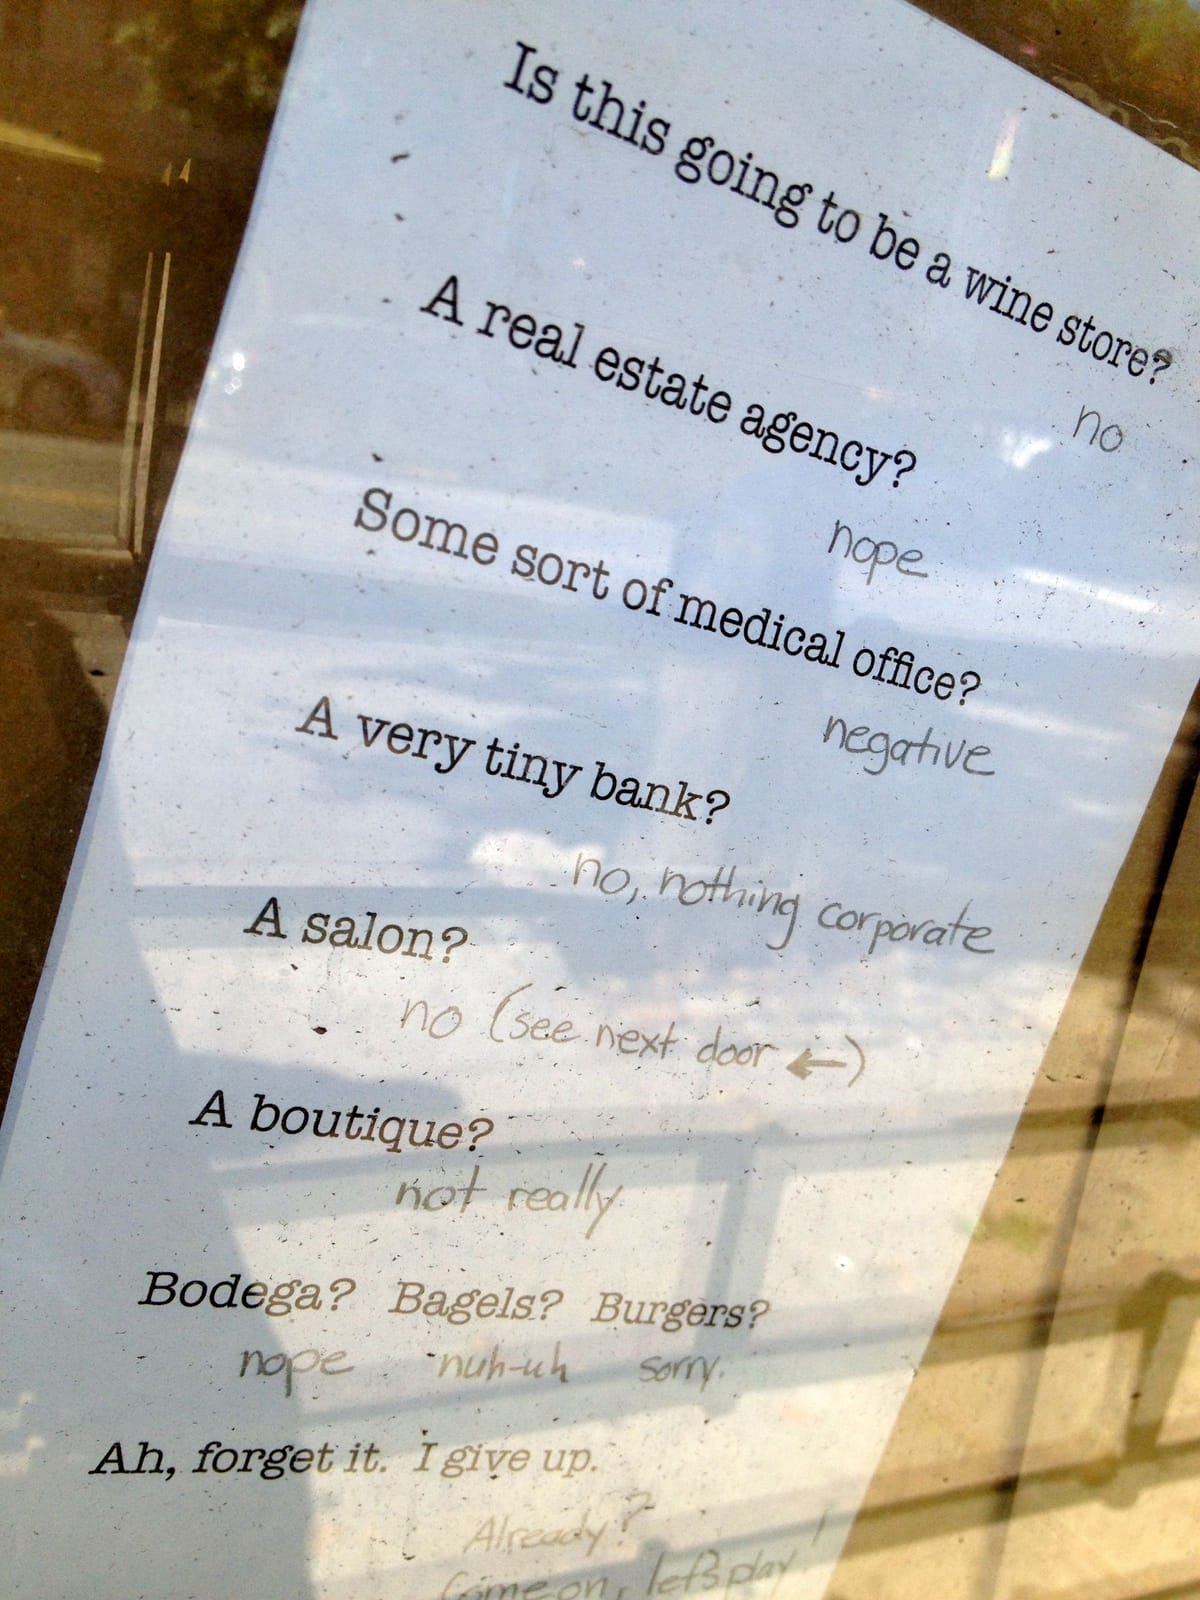 Is this going to be a wine store?
no
A real estate agency?
nope
Some sort of medical office?
negative
A very tiny bank?
no, nothing corporate
A salon?
no (see next door ←)
A boutique?
not really
Bodega? Bagels? Burgers?
nope nuh-uh sorry.
Ah, forget it. I give up.
Already?
Come on, let's play!